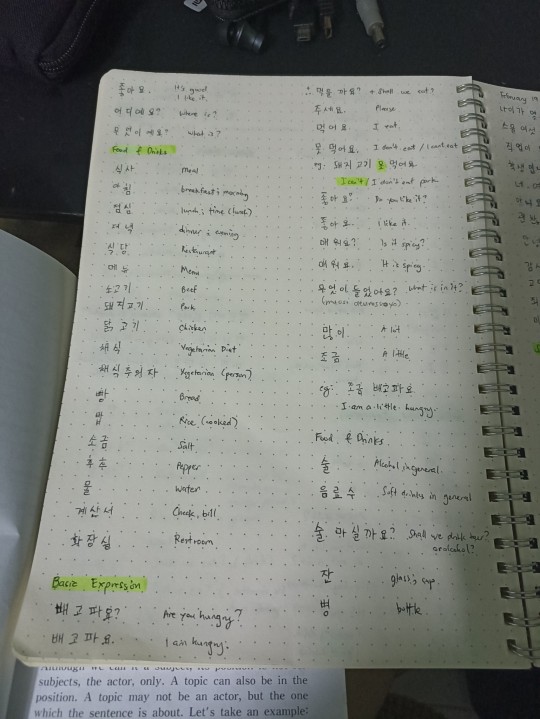 좋아요. It's good
I like it.
어디예요? Where is?
무엇이에요? What is?
Food & Drinks
식사 Meal
아침 breakfast; morning
점심 lunch; time (lunch)
저녁 dinner; evening
식당 Restaurant
메뉴 Menu
소고기 Beef
돼지고기 Pork
닭고기 Chicken
채식 Vegetarian Diet
채식주의자 Vegetarian (person)
빵 Bread
밥 Rice (cooked)
소금 Salt
후추 Pepper
물 water
계산서 Check, bill
화장실 Restroom
Basic Expression
배고파요? Are you hungry?
배고파요. I am hungry.
먹을까요? Shall we eat?
주세요. Please
먹어요 I eat.
못 먹어요. I don't eat / I can't eat
eg. 돼지고기 못 먹어요.
I can't / I don't eat pork
좋아요? Do you like it?
좋아요. I like it.
매워요? Is it spicy?
매워요. It is spicy.
무엇이 들었어요? What is in it?
많이 A lot
조금 A little
eg: 조금 배고파요
I am a little hungry.
Food & Drinks
술 Alcohol in general
음료수 Soft drinks in general
술 마실까요? Shall we drink
or alcohol?
잔 glass; cup
병 bottle
February
subjects, the actor, only. A topic can also be in the
position. A topic may not be an actor, but the one
which the sentence is about. Let's take an example: